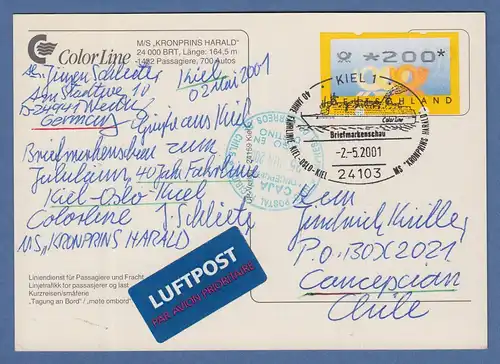 Color Line
M/S „KRONPRINS HARALD"
24 000 BRT, Länge: 164,5 m
1432 Passagiere, 700 Autos
Kiel
02 Mai 2001
Germany
Grüße aus Kiel
Briefmarkenschau zum
Jubiläum 40 Jahr Fährlinie
Kiel-Oslo-Kiel
Colorline J. Schlietz
M/S „KRONPRINS HARALD
Liniendienst für Passagiere und Fracht
Linjetrafikk for passasjerer og last
Kurzreisen/småferie
„Tagung an Bord" / „møte ombord"
LUFTPOST
PAR AVION PRIORITAIRE
*200*
DEUTSCHLAND
KIEL 1
40 JAHRE FÄHRLINIE KIEL-OSLO-KIEL
Color Line
Briefmarkenschau
-2.-5.2001
24103
MS "KRONPRINS HARALD"
CAJA
P.O. BOX 2021
Concepcion
Chile